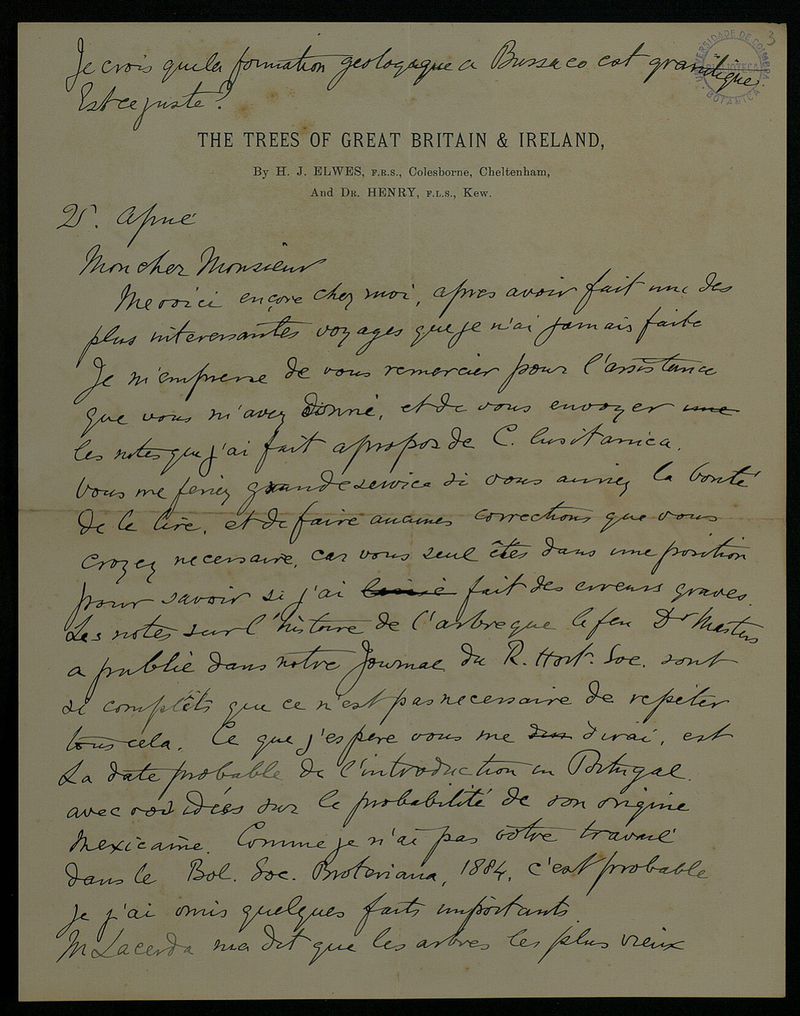 Je crois que la formation geologique a Bussaco est granitique
Est ce juste?
3
UNIVERSIDADE DE COIMBRA
BIBLIOTECA
BOTANICA
THE TREES OF GREAT BRITAIN & IRELAND,
By H. J. ELWES, F.R.S., Colesborne, Cheltenham,
And DR. HENRY, F.L.S., Kew.
25. April
Mon cher Monsieur
Me voici encore chez moi, apres avoir fait une des
plus interessantes voyages que je n'ai jamais faite
Je m'empresse de vous remercier pour l'assistance
que vous m'avez donné, et de vous envoyer une
les notes que j'ai fait apropos de C. lusitanica.
Vous me feriez grande service si vous auriez la bonté
de le lire, et de faire aucunes corrections que vous
croyez necessaire, car vous seul êtes dans une position
pour savoir si j'ai fait des erreurs graves.
Les notes sur l'histoire de l'arbre que le feu Dr Masters
a publié dans notre Journal du R. Hort. Soc. sont
si complêts que ce n'est pas necessaire de repéter
tous cela. Ce que j'espere vous me dirai, est
La date probable de l'introduction en Portugal.
avec vos idées sur la probabilité de son origine
Mexicaine. Comme je n'ai pas votre travail
dans le Bol. Soc. Broteriana, 1884, c'est probable
je j'ai omis quelques faits importants
M Lacerda ma dit que les arbres les plus vieux